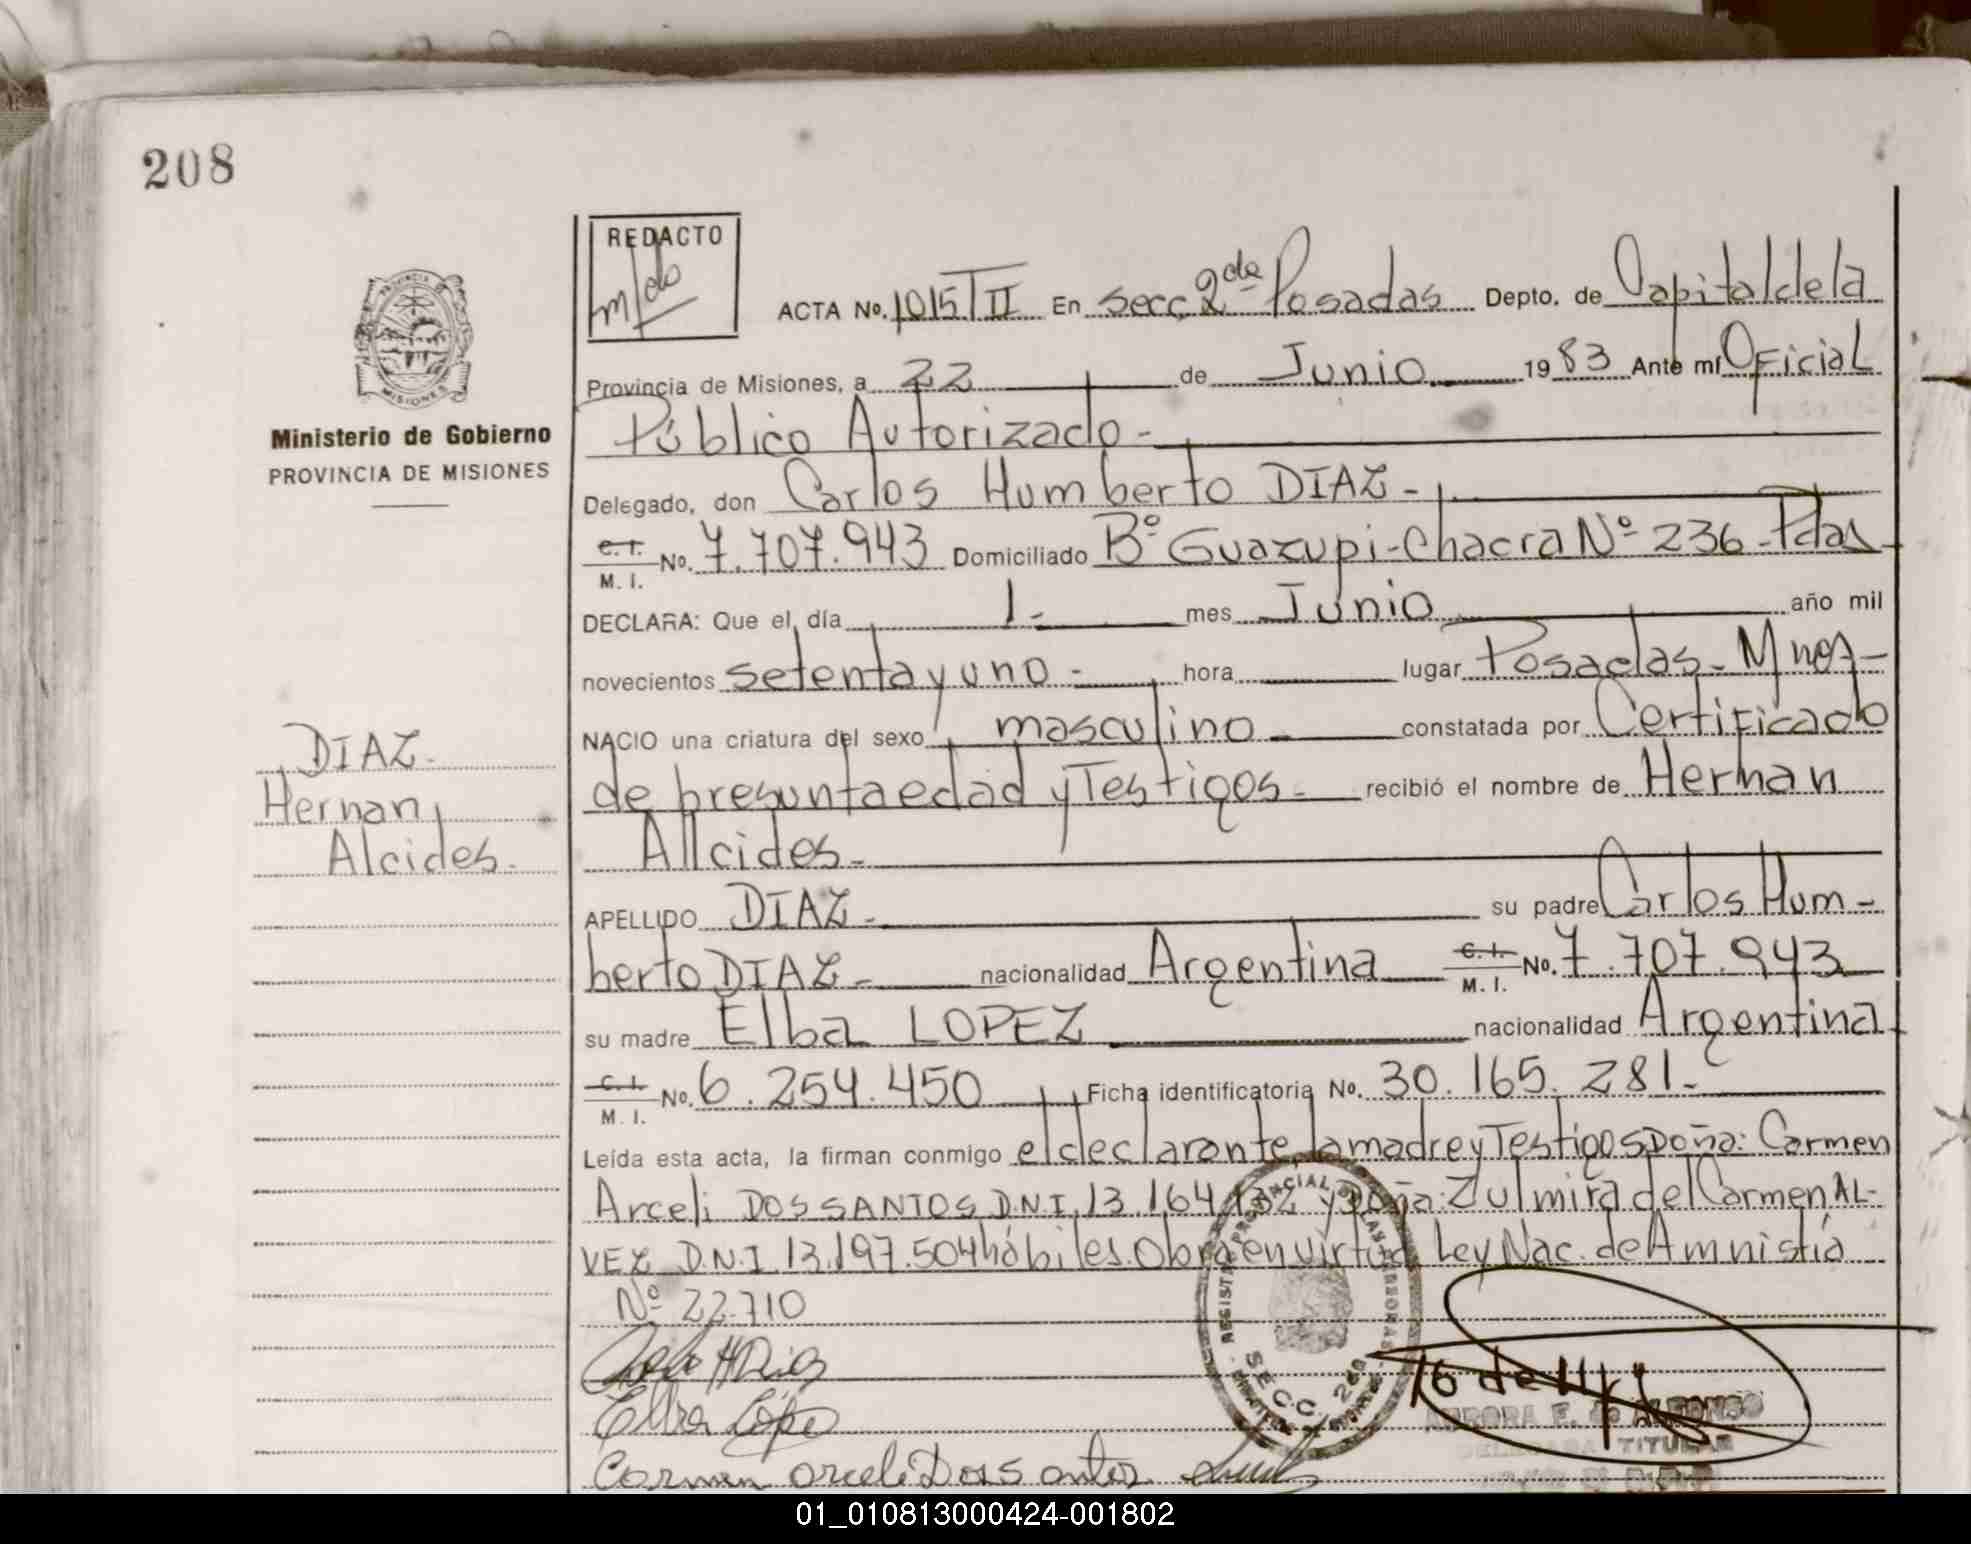 208
REDACTO
ACTA No. 1015/II En secc 2da Posadas Depto. de Capital de la
Provincia de Misiones, a 22 de Junio 1983 Ante mí Oficial
Público Autorizado-
Delegado, don Carlos Humberto DIAZ-
C. I. M. I. No. 7.707.943 Domiciliado Bº Guazupi-Chacra Nº 236-Pdas
DECLARA: Que el día 1- mes Junio año mil
novecientos setenta y uno- hora lugar Posadas-Mnes-
NACIO una criatura del sexo masculino- constatada por Certificado
de presunta edad y Testigos- recibió el nombre de Hernan
Allcides-
APELLIDO DIAZ- su padre Carlos Hum-
berto DIAZ- nacionalidad Argentina C. I. M. I. No. 7.707.943
su madre Elba LOPEZ nacionalidad Argentina
C. I. M. I. No. 6.254.450 Ficha identificatoria No. 30.165.281-
Leída esta acta, la firman conmigo el declarante, la madre y Testigos Doña: Carmen
Arceli DOS SANTOS D.N.I. 13.164.132 y Doña: Zulmira del Carmen AL-
VEZ D.N.I. 13.197.504 hábiles. Obra en virtud Ley Nac. de Amnistía
Nº 22.710
Elba López
Carmen Arceli Dos Santos
PROVINCIA DE
MISIONES
Ministerio de Gobierno
PROVINCIA DE MISIONES
DIAZ-
Hernan
Alcides-
REGISTRO PROVINCIAL DE LAS PERSONAS
SECC. 2da
AURORA E. de ALFONSO
DELEGADA TITULAR
01_010813000424-001802